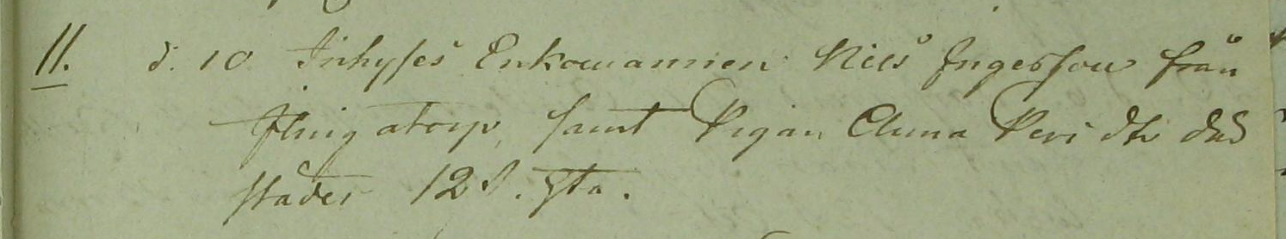 11. d. 10 Inhyses Enkomannen Nils Ingersson från
Ilingatorp, samt Pigan Anna Pers dtr där
städes 12 s. gta.